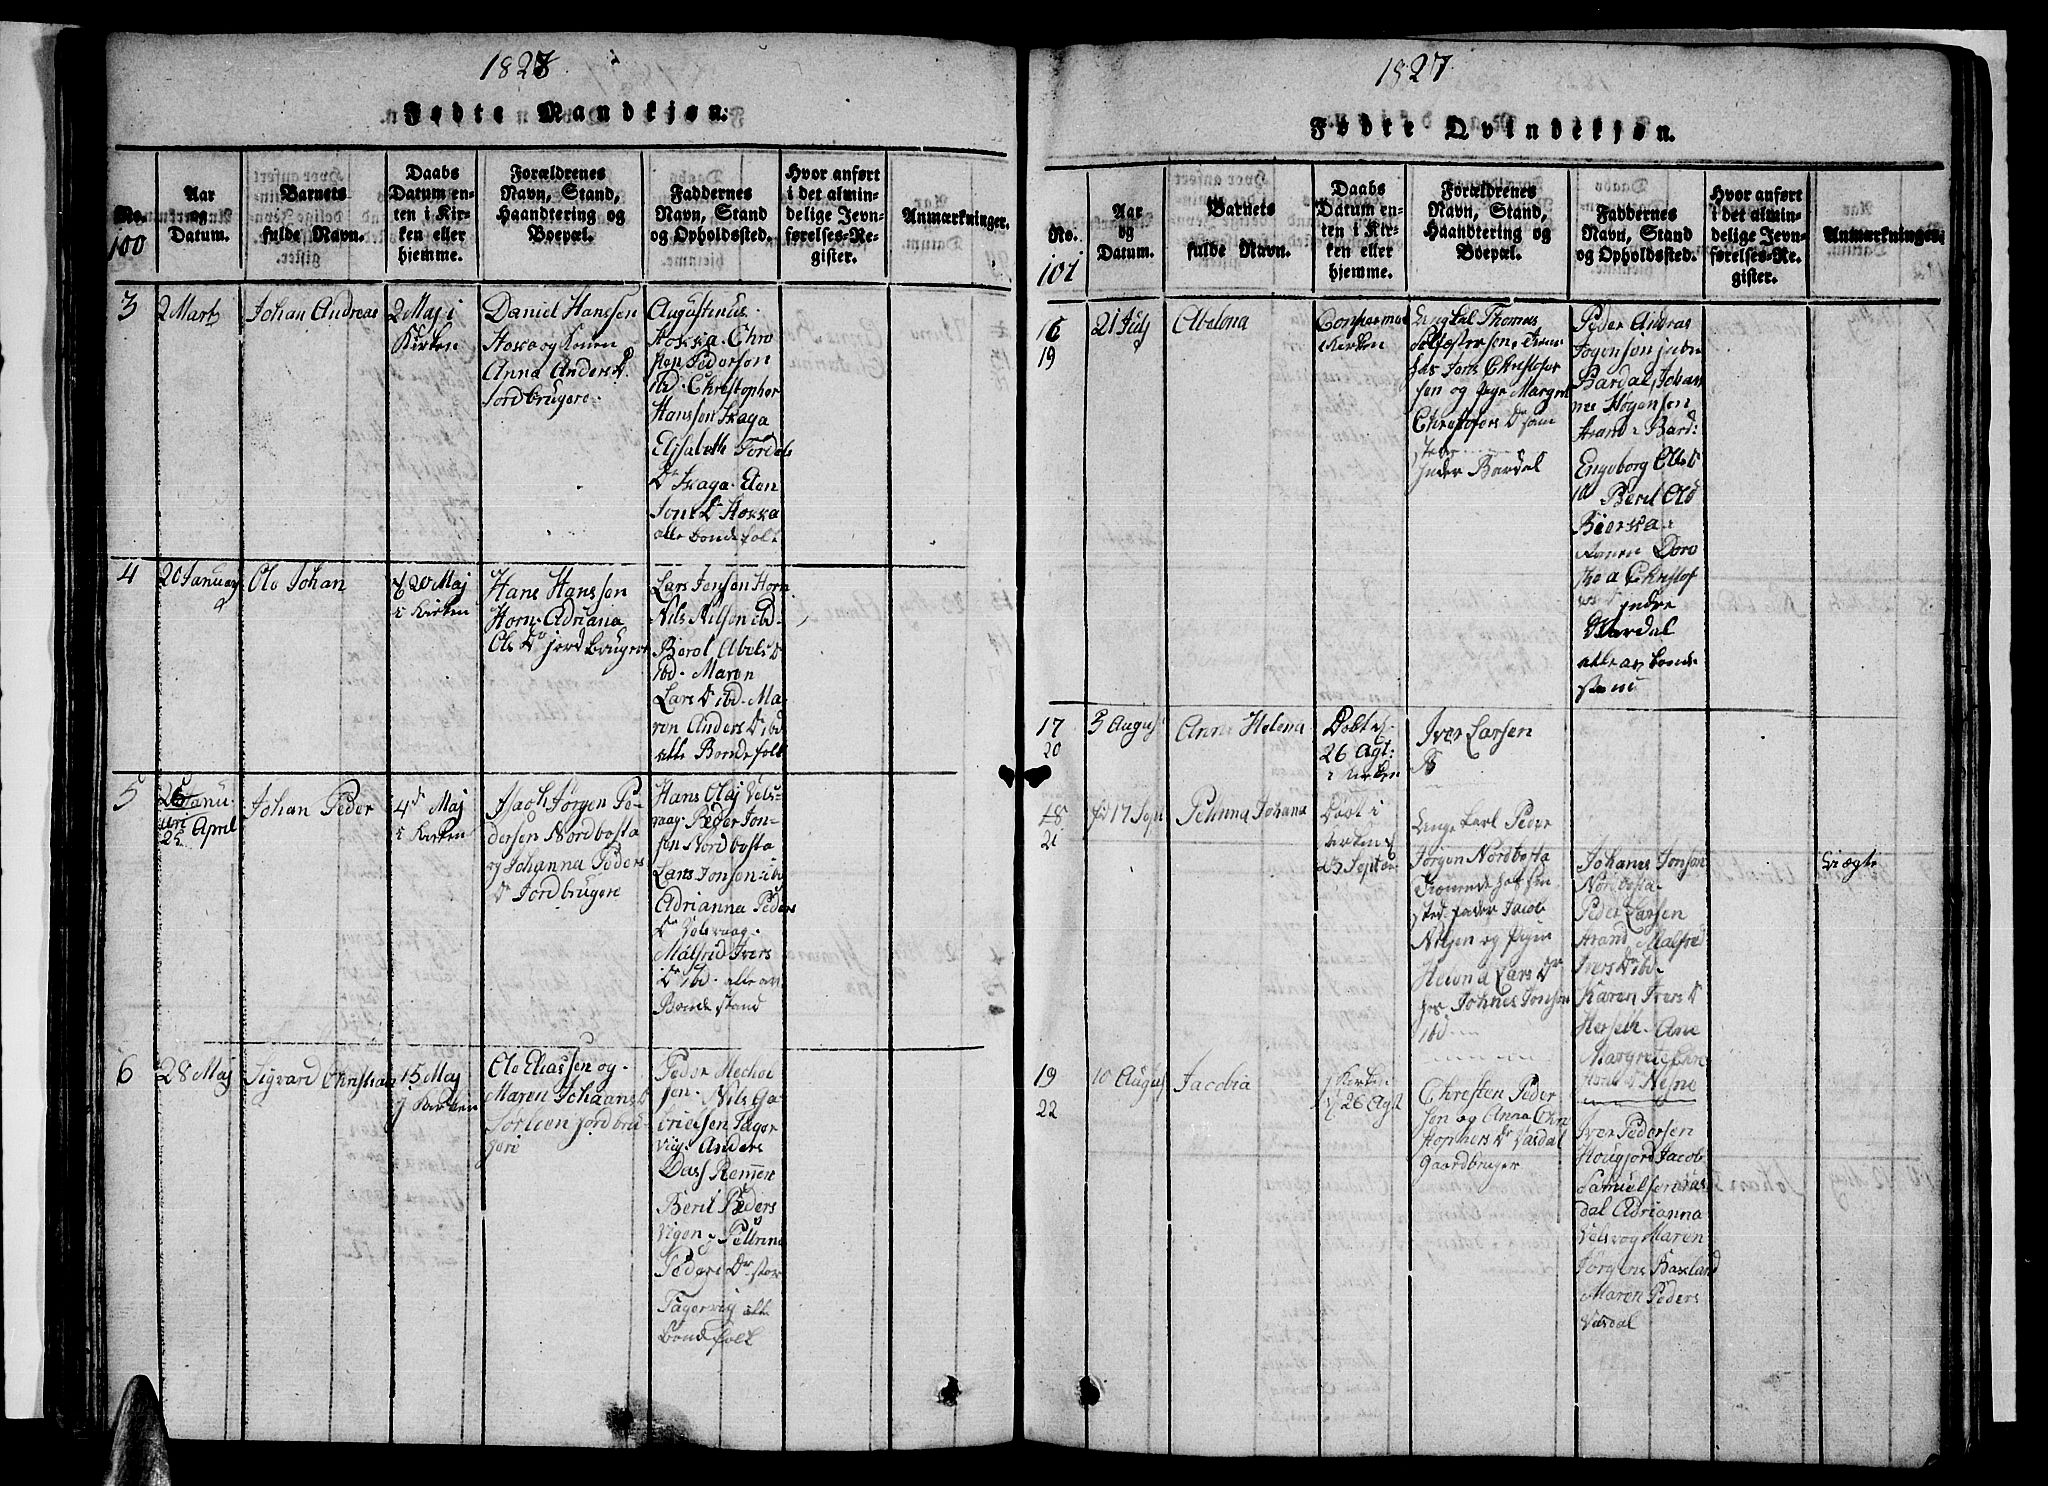 1828
Fødte Mandkjøn.
No.
100
Aar
og
Datum.
Barnets
fulde Navn.
Daabs
Datum en-
ten i Kir-
ken eller
hjemme.
Forældrenes
Navn, Stand,
Haandtering og
Boepæl.
Faddernes
Navn, Stand
og Opholdssted.
Hvor anført
i det almin-
delige Jevn-
førelses-Re-
gister.
Anmærkninger.
3
2 Marts
Johan Andreas
2 Maj i
Kirken
Daniel Hanssen
Hoxa og Konen
Anna Anders D.
Jordbrugere.
Augustinus
Hoxxa. Chro
Pederson
ibd. Christopher
Hansson Fraga
Elisabeth Tordals
Dr Fraga. Elen
Jons D Hoxxa
alle bondefolk
4
20 Januar
Ole Johan
20 Maj
i Kirken
Hans Hanssen
Horn. Adriana
Ols Dr jordbrugere
Lars Jensen Horn
Nils Nilsen ibd.
Berol Abels D
ibd. Maren
Lars D ibd. Ma-
ren Anders D ibd
alle Bondefolk
5
26 Janu-
ari
25 April
Johan Peder
4de Maj
i Kirken
Isach Jørgen Pe-
dersen Nordbosta
og Johanna Peders
Dr Jordbrugere
Hans Olaj Vels-
vaag. Peder Jon-
sen Nordbosta
Lars Jonsen ibd
Adrianna Peders
Dr Velsvaag.
Malfrid Ivers
Dr ibd. alle av
Bondestand
6
28 Maj
Sigvard Christian
15 Maj
i Kirken
Ole Eliassen og
Maren Johans D
Sørleen jordbru-
gere
Peder Mechei
sen. Nils Ga-
brielsen Tager
viig. Anders
Dass Remmen
Beril Peders
Vigen. Pellrine
Peders Dr stor
Tagervig alle
Bondefolk
1827
Fødte Qvindekjøn.
No.
101
Aar
og
Datum.
Barnets
fulde Navn.
Daabs
Datum en-
ten i Kir-
ken eller
hjemme.
Forældrenes
Navn, Stand,
Haandtering og
Boepæl.
Faddernes
Navn, Stand
og Opholdssted.
Hvor anført
i det almin-
delige Jevn-
førelses-Re-
gister.
Anmærkninger.
16
19
21 Julj
Abelona
Kirken
Ungkal Thomas
hos Jens Christofer
sen og Pige Margret
Christofers D samme
sted
Inder Bardal
Peder Andras
Jogenson indre
Bardal, Johan
nes Jøgensen
Strand i Bard:
Engeborg Ols D
Beril Ols
Bierkka
Konen Doro
thea Christof
indre
Bardal
alle av bonde
stand
17
20
3 August
Anne Helena
Døbt
26 Agt:
i Kirken
Iver Larsen
18
21
17 Sept
Pelinna Johana
Døbt i
Kirken d
23 Septer
Ungekarl Peder
Jørgen Nordbosta
hos sin
sted fader Jacob
Nilsen og Pigen
Lars Dr
hos Johnes Jonsen
ibd
Johanes Jonsen
Nordbosta
Peder Larsen
Strand Malfre
Ivers D ibd.
Karen Ivers D
Herseth. Ane
Margrete Chri
Nesne
Uægte
19
22
10 August
Jacobia
i Kirken
26 Agt
Christen Peder
sen og Anna Chri
stophers Dr Vasdal
Gaardbruger
Iver Pedersen
Hougjord Jacob
Samuelsen Vas
dal Adrianna
Velsvog Maren
Jørgens Baxland
Maren Peders
Vasdal